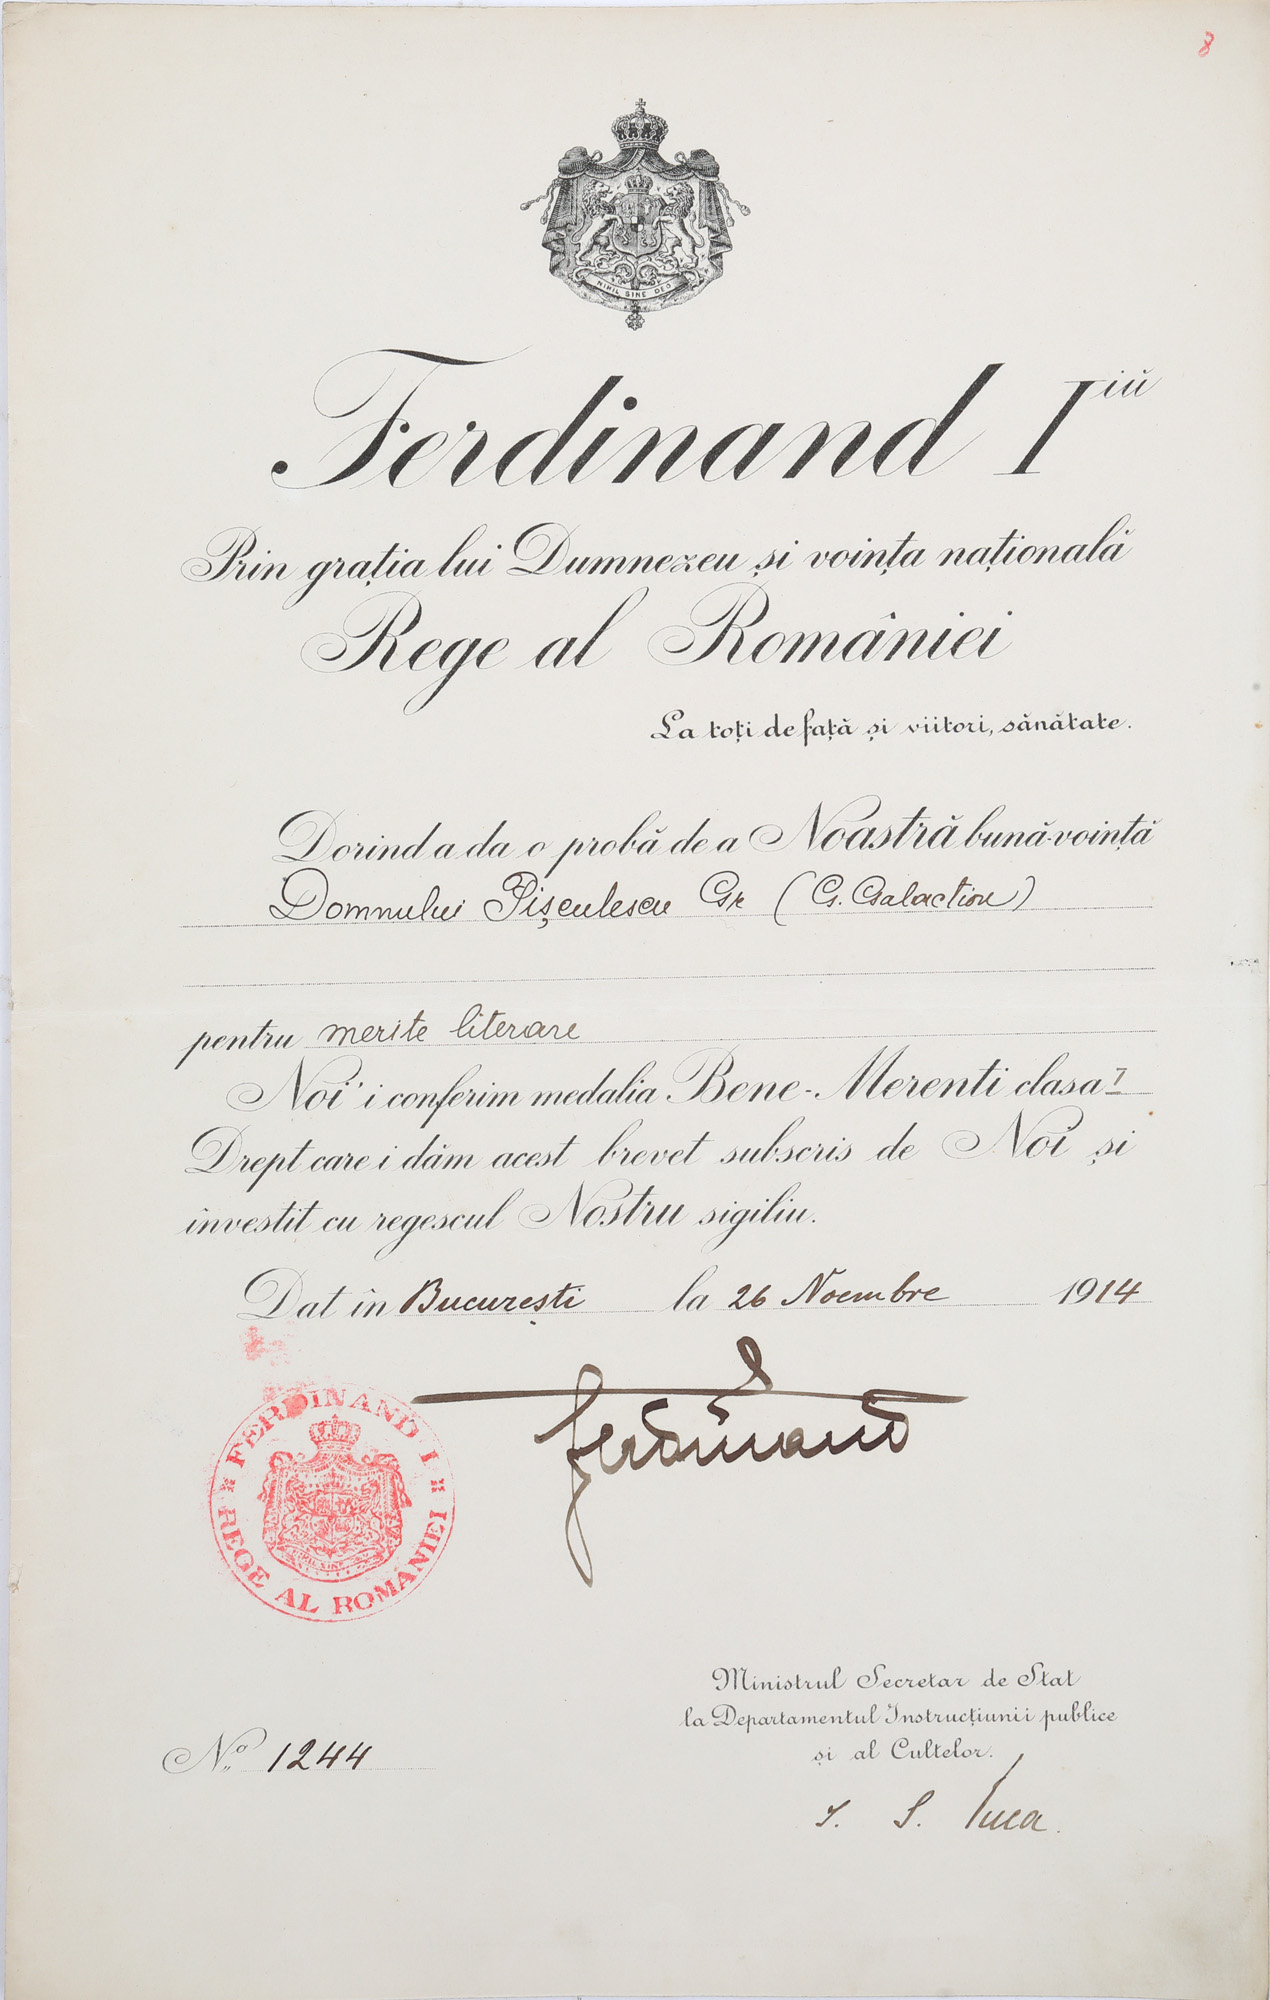 8
NIHIL SINE DEO
Ferdinand I iŭ
Prin grația lui Dumnezeu și voința națională
Rege al României
La toți de față și viitori, sănătate.
Dorind a da o probă de a Noastră bună-voință
Domnului Pișculescu Gr (G. Galaction)
pentru merite literare
Noi 'i conferim medalia Bene-Merenti clasa I
Drept care i dăm acest brevet subscris de Noi și
investit cu regescul Nostru sigiliu.
Dat în București la 26 Noembre 1914
Ferdinand
FERDINAND I
REGE AL ROMÂNIEI
Ministrul Secretar de Stat
la Departamentul Instrucțiunii publice
și al Cultelor.
No. 1244